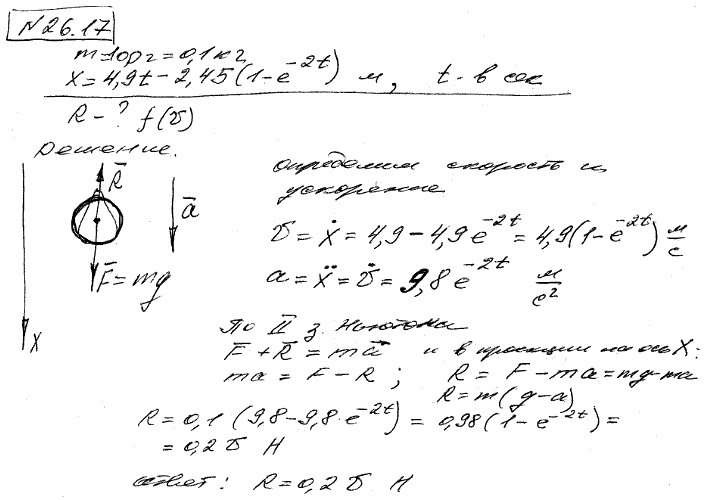 N 26.17
m=100 г = 0,1 кг
x = 4,9t - 2,45(1-e^{-2t}) м, t - в сек
R - ? f(v)
Решение.
R̄
ā
F̄ = mg
X
определим скорость и
ускорение
v = ẋ = 4,9 - 4,9e^{-2t} = 4,9(1-e^{-2t}) м/с
a = ẍ = v̇ = 9,8 e^{-2t} м/с²
По II з. Ньютона
F̄ + R̄ = mā и в проекции на ось X:
ma = F - R ; R = F - ma = mg - ma
R = m(g-a)
R = 0,1 (9,8 - 9,8·e^{-2t}) = 0,98(1-e^{-2t}) =
= 0,2 v Н
ответ: R = 0,2 v Н